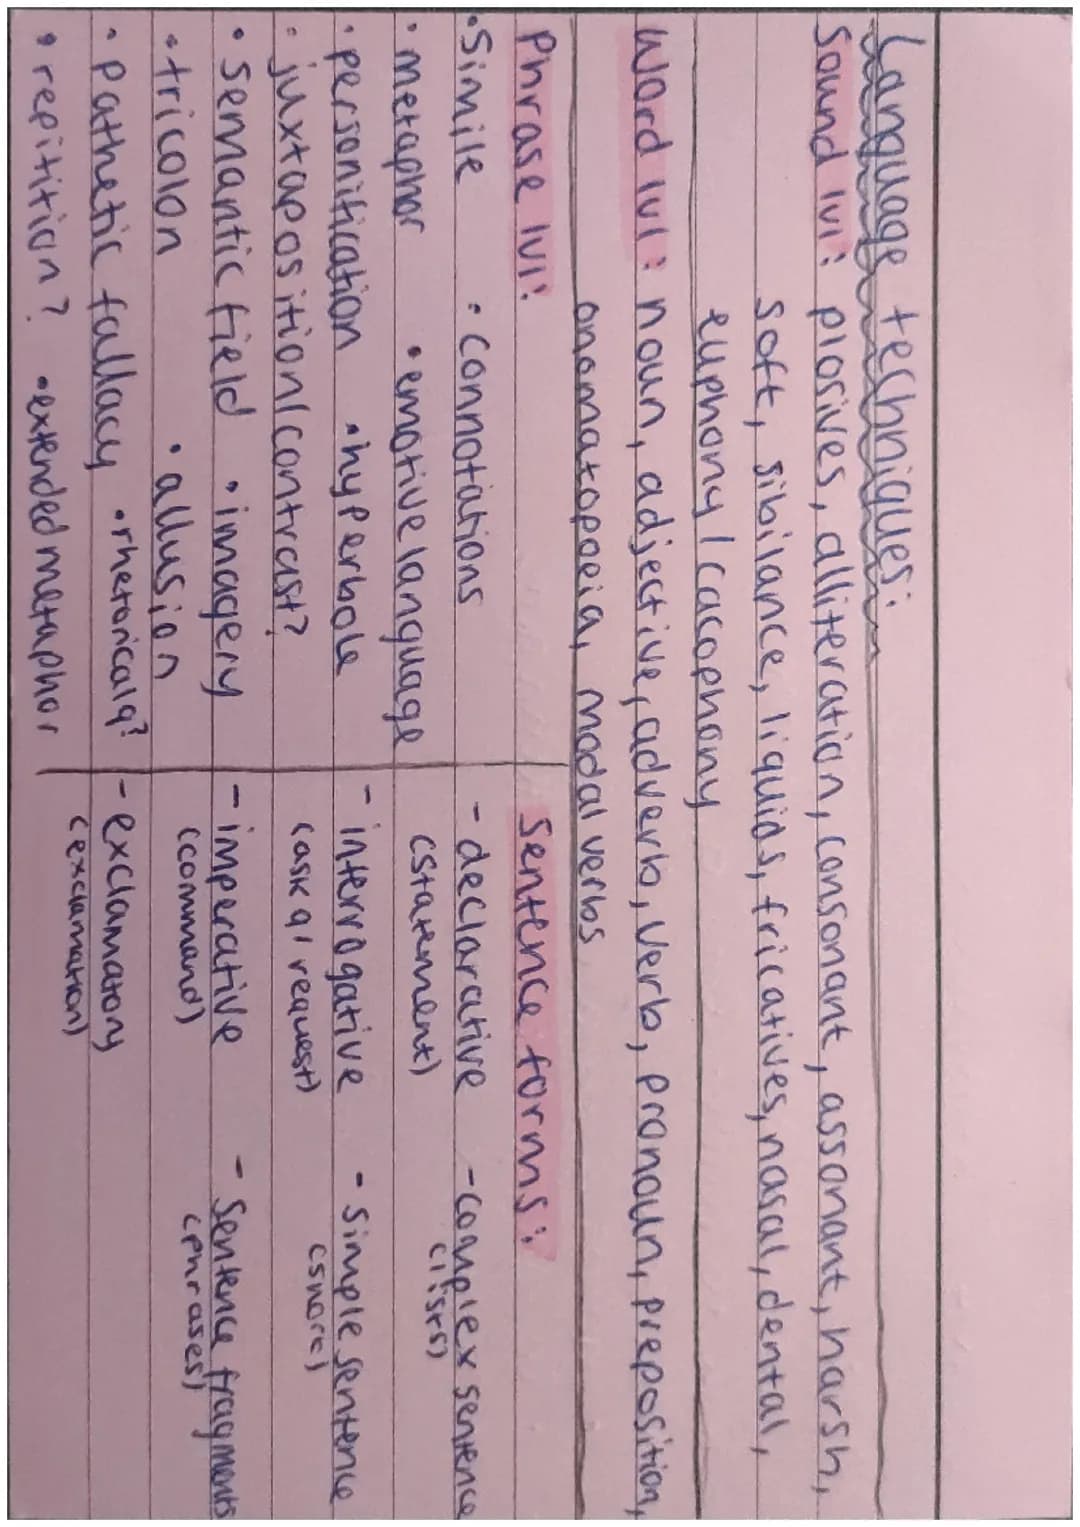 Language techniques:
Sound lvl: plosives, alliteration, consonant, assonant, harsh,
soft, sibilance, liquids, fricatives, nasal, dental,
euphony / cacophony
Word lvl: noun, adjective, adverb, verb, pronoun, preposition,
onomatopoeia, modal verbs
Phrase lvl:
• Simile • connotations
• metaphor • emotive language
• personification • hyperbole
• juxtaposition/contrast?
• Semantic field • imagery
• tricolon • allusion
• pathetic fallacy • rhetorical q?
• repitition? • extended metaphor
Sentence forms:
- declarative - Complex sentence
(statement) (lists)
- interrogative - Simple sentence
(ask q / request) (short)
- imperative - Sentence fragments
(command) (phrases)
- exclamatory
(exclamation)